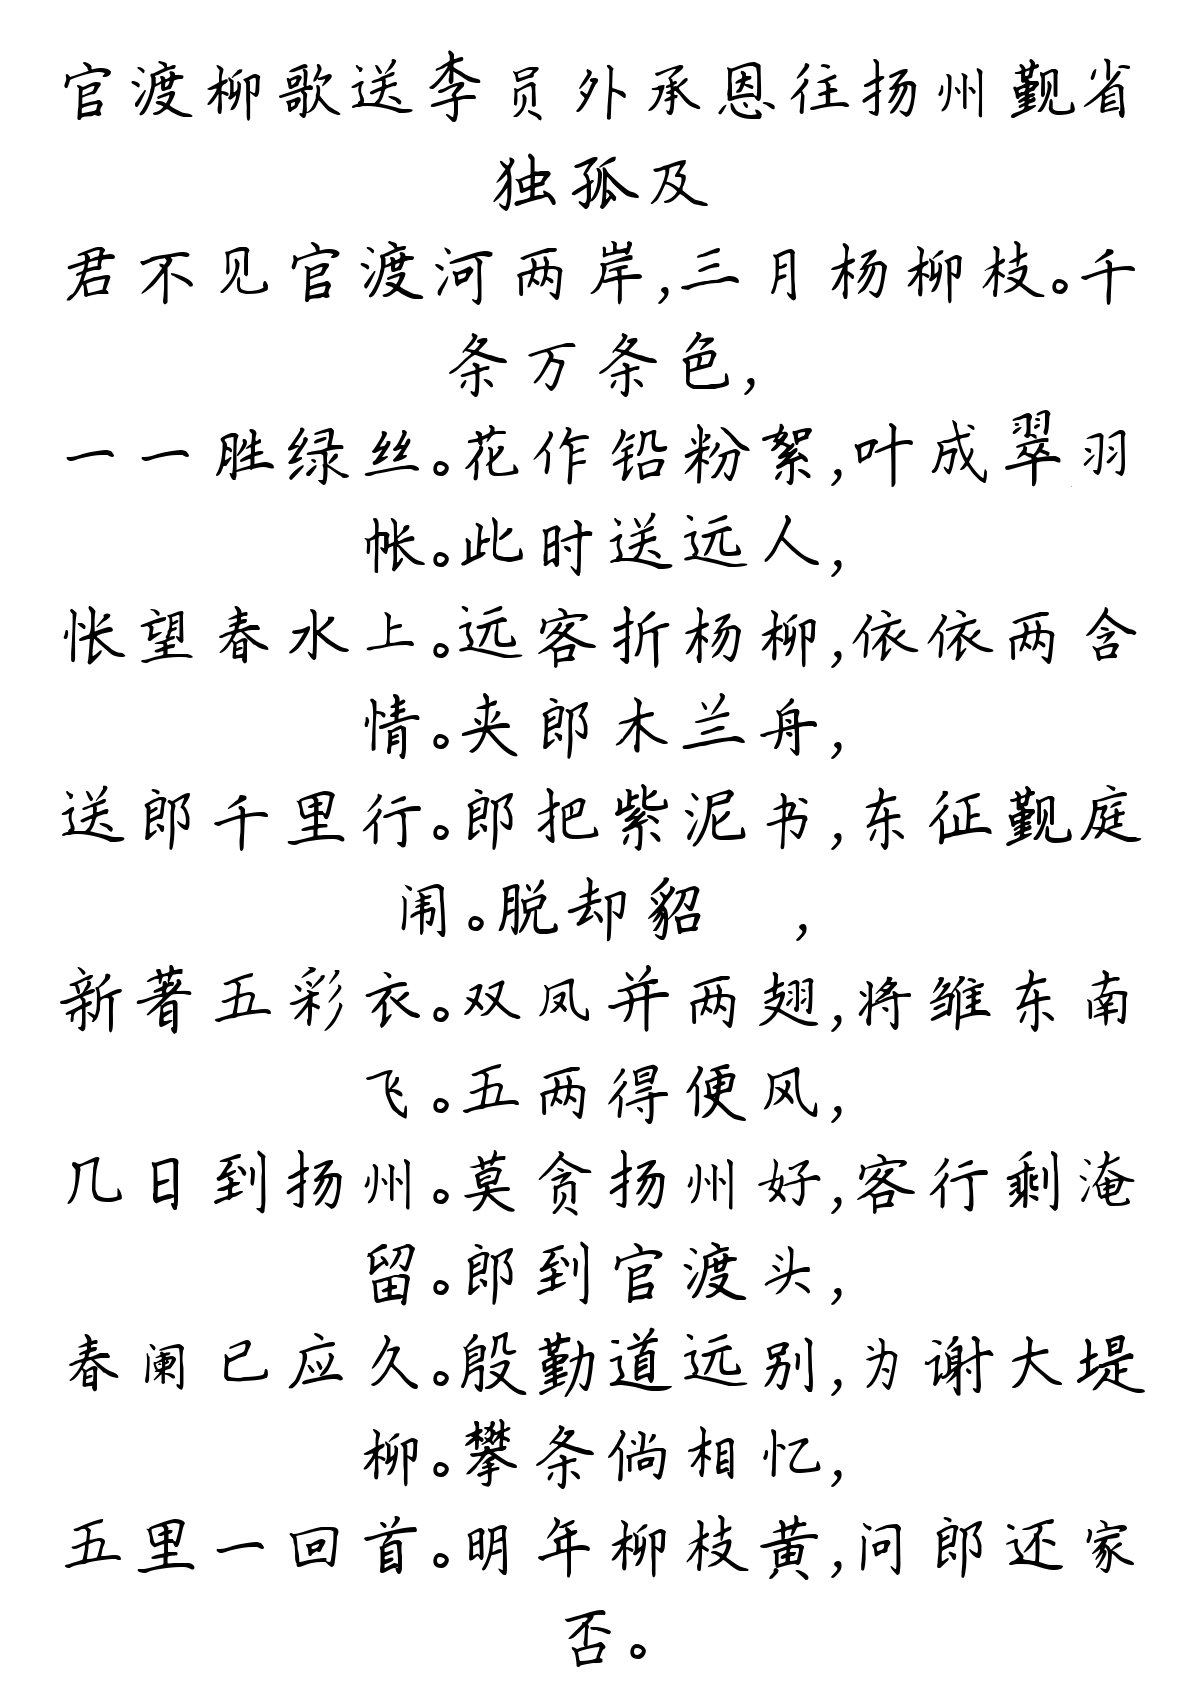 官渡柳歌送李员外承恩往扬州觐省
独孤及
君不见官渡河两岸,三月杨柳枝。千
条万条色,
一一胜绿丝。花作铅粉絮,叶成翠羽
帐。此时送远人,
怅望春水上。远客折杨柳,依依两含
情。夹郎木兰舟,
送郎千里行。郎把紫泥书,东征觐庭
闱。脱却貂 ,
新著五彩衣。双凤并两翅,将雏东南
飞。五两得便风,
几日到扬州。莫贪扬州好,客行剩淹
留。郎到官渡头,
春阑已应久。殷勤道远别,为谢大堤
柳。攀条倘相忆,
五里一回首。明年柳枝黄,问郎还家
否。